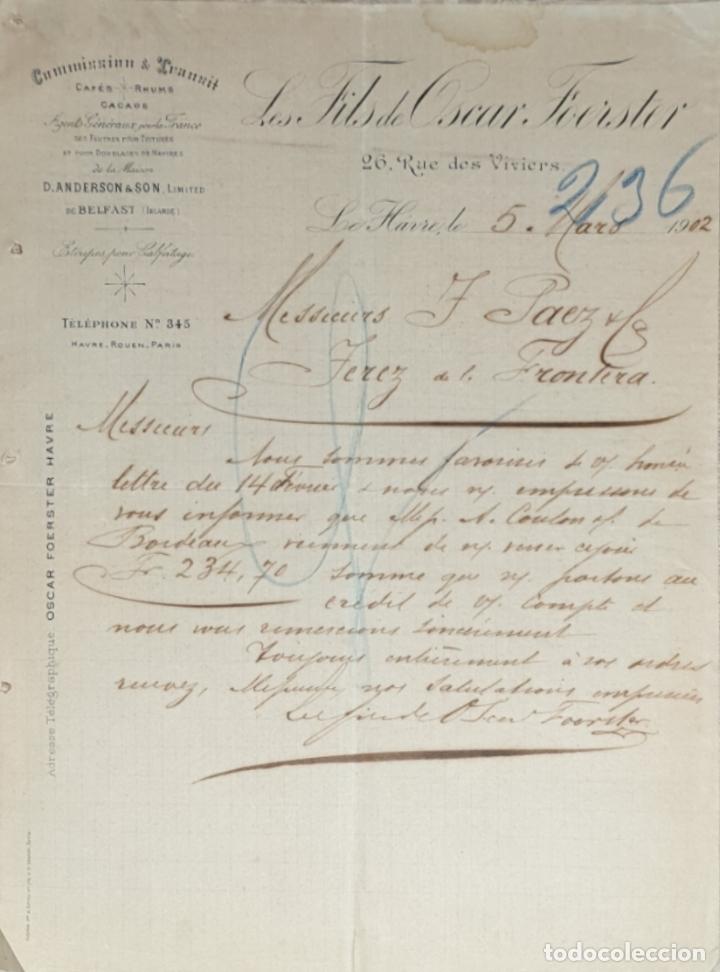 Commission & Transit
CAFÉS RHUMS
CACAOS
Agents Généraux pour la France
DES FEUTRES POUR TOITURES
ET POUR DOUBLAGES DE NAVIRES
de la Maison
D. ANDERSON & SON, LIMITED
DE BELFAST (IRLANDE)
Etoupes pour Calfatage
TÉLÉPHONE No 345
HAVRE, ROUEN, PARIS
Adresse Télégraphique OSCAR FOERSTER HAVRE
Les Fils de Oscar Foerster
26, Rue des Viviers.
2136
Le Hâvre, le 5. Mars 1902
Messieurs J Paez & Co
Jerez de l. Frontera.
Messieurs
Nous sommes favorisés de v/ honorée
lettre du 14 Février & nous n/ empressons de
vous informer que Mess. A. Coulon de
Bordeaux viennent de n/ verser
Fr. 234,70 somme que n/ portons au
crédit de v/ compte et
nous vous remercions sincèrement
Toujours entièrement à vos ordres
recevez, Messieurs nos salutations empressées
Les fils de Oscar Foerster
todocoleccion